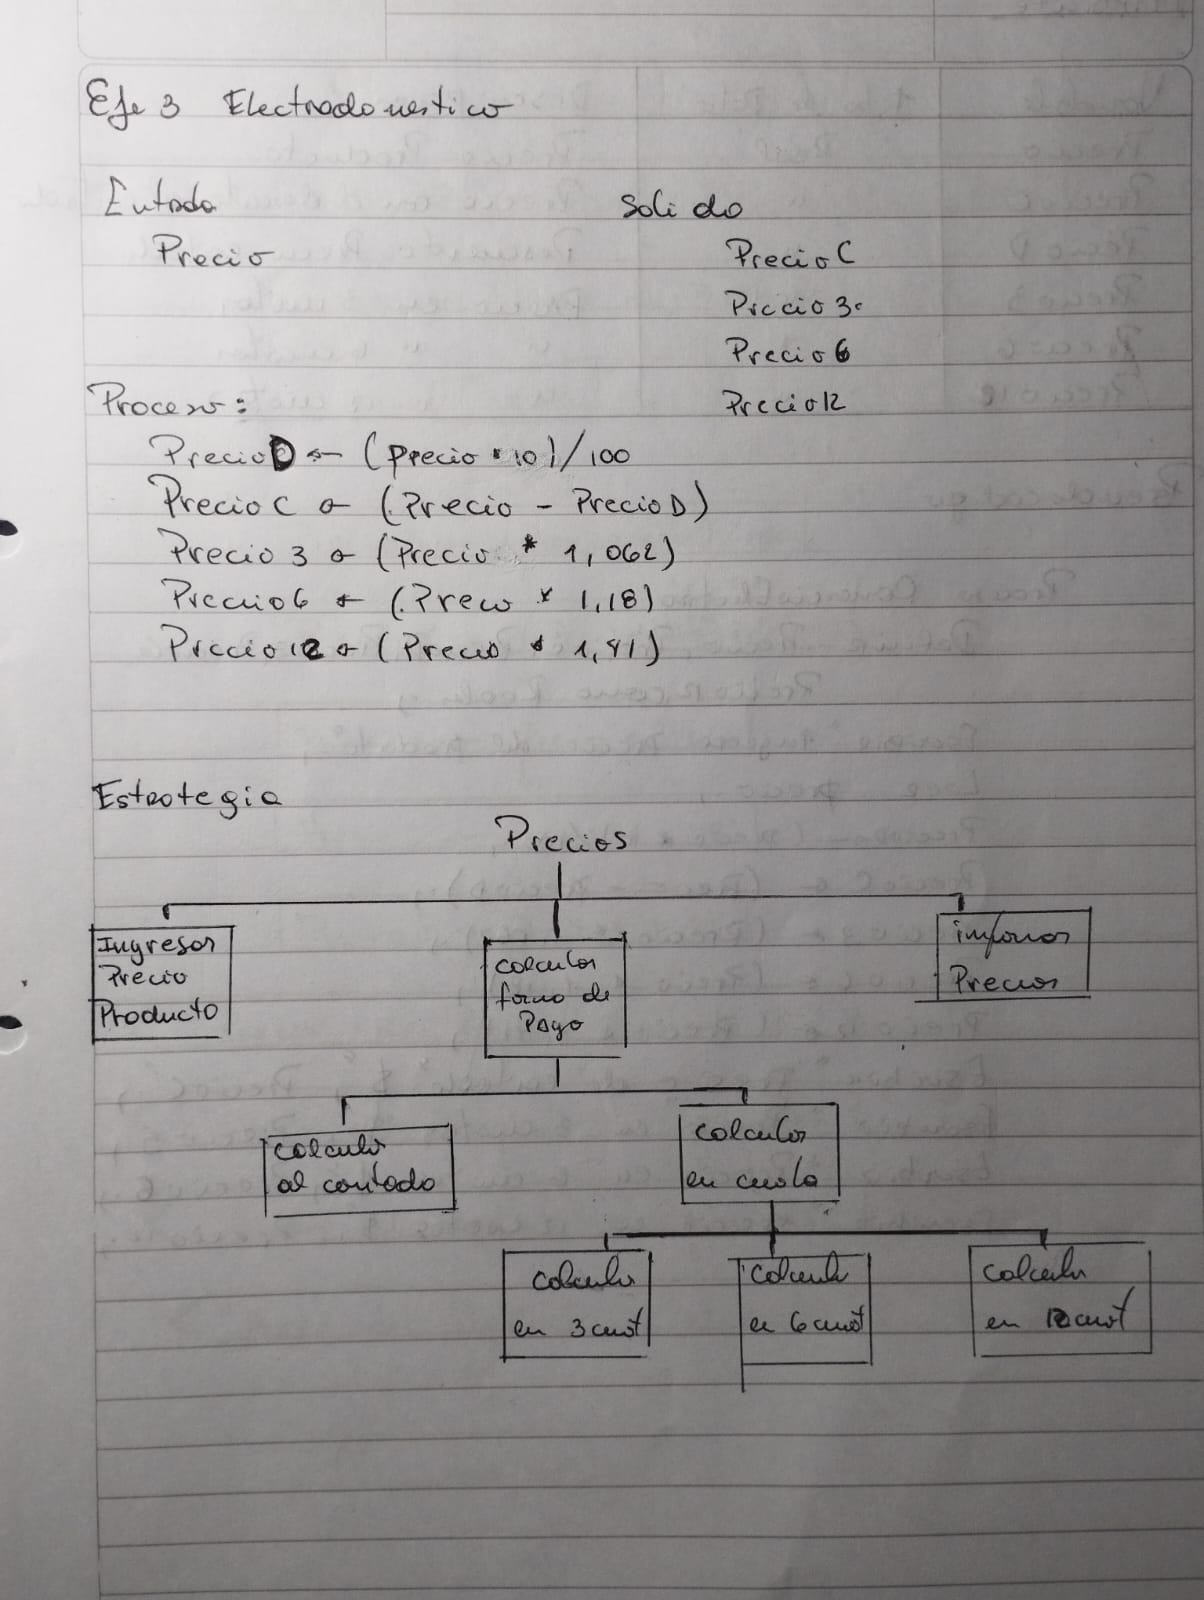 Eje 3 Electrodomestico
Entrada
Salida
Precio
Precio C
Precio 3
Precio 6
Proceso:
Precio 12
Precio D ← (Precio * 10)/100
Precio C ← (Precio - Precio D)
Precio 3 ← (Precio * 1,062)
Precio 6 ← (Precio * 1,18)
Precio 12 ← (Precio * 1,41)
Estrategia
Precios
Ingresar
Precio
Producto
calcular
forma de
Pago
informar
Precios
calcular
al contado
calcular
en cuota
calcular
en 3 cuot
calcular
en 6 cuot
calcular
en 12 cuot